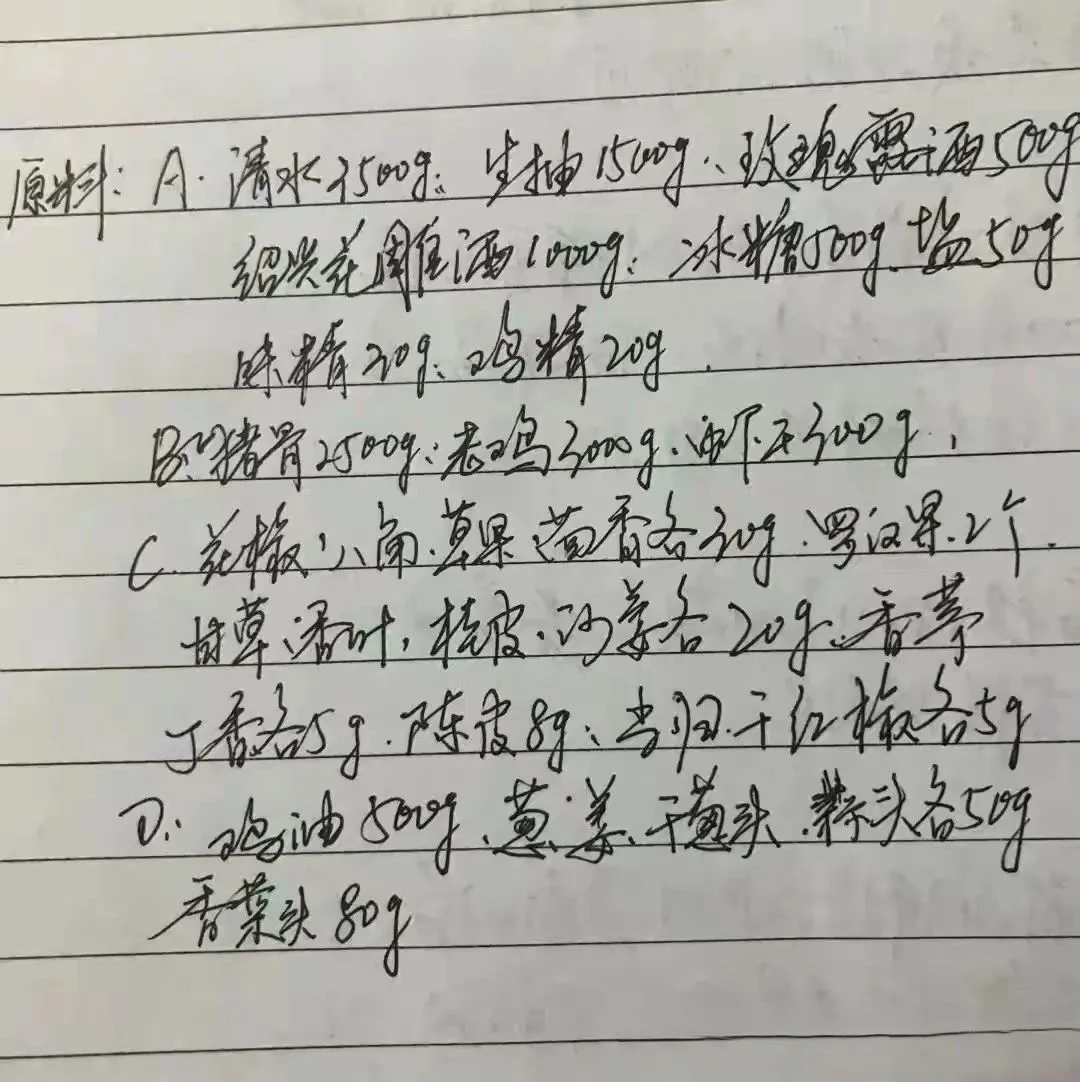 原料: A. 清水3500g、生抽1500g、玫瑰露酒500g
绍兴花雕酒1000g、冰糖500g、盐50g
味精30g、鸡精20g.
B、猪骨2500g、老鸡3000g、虾干300g,
C. 花椒、八角、草果、茴香各30g、罗汉果2个.
甘草、香叶、桂皮、沙姜各20g、香茅
丁香各5g、陈皮8g、当归、干红椒各5g
D、鸡油500g、葱、姜、干葱头、蒜头各50g
香菜头80g